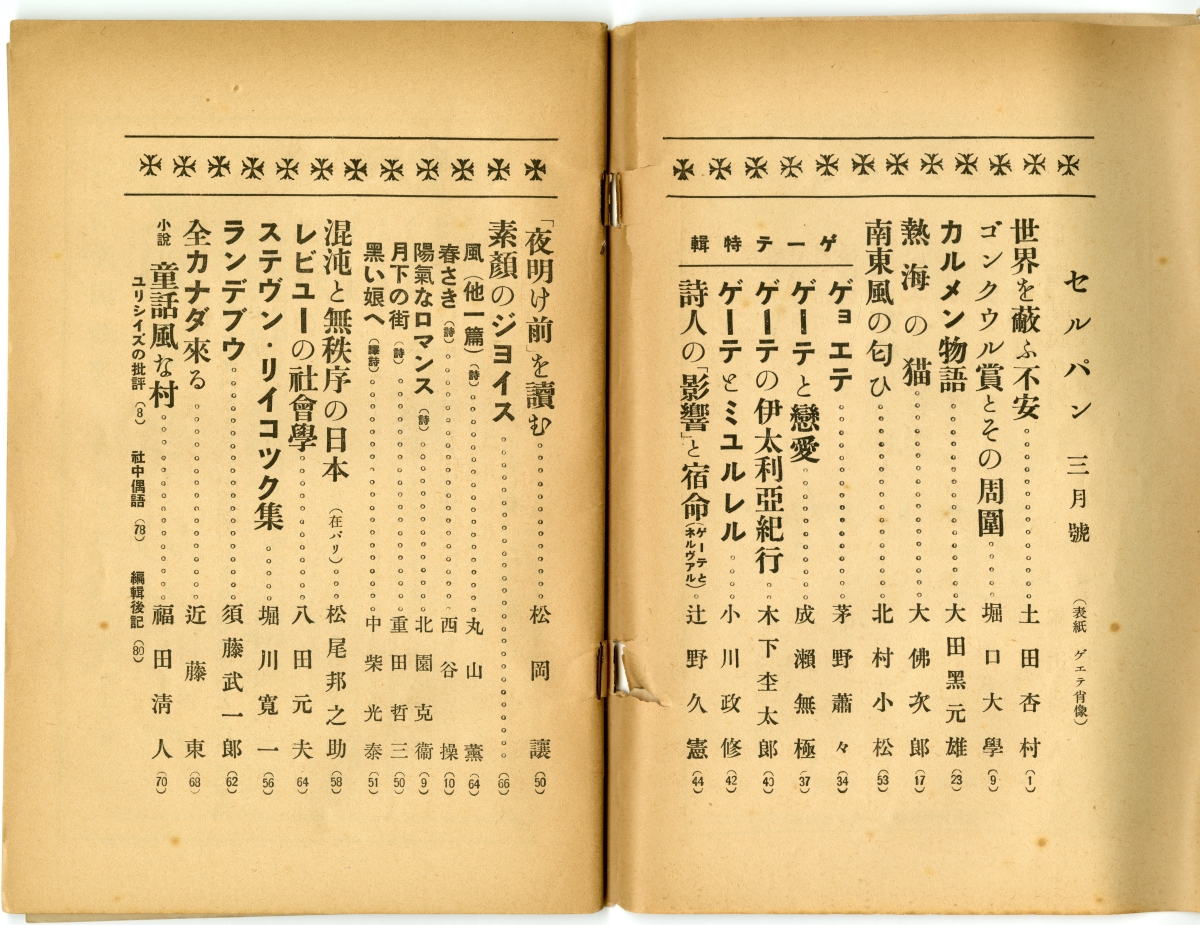 セルパン 三月號 (表紙 ゲエテ肖像)
世界を蔽ふ不安 土田杏村 (1)
ゴンクウル賞とその周圍 堀口大學 (9)
カルメン物語 大田黑元雄 (23)
熱海の猫 大佛次郎 (17)
南東風の匂ひ 北村小松 (53)
ゲーテ特輯
ゲョエテ 茅野蕭々 (34)
ゲーテと戀愛 成瀨無極 (37)
ゲーテの伊太利亞紀行 木下杢太郎 (40)
ゲーテとミユルレル 小川政修 (42)
詩人の「影響」と宿命(ゲーテとネルヴアル) 辻野久憲 (44)
「夜明け前」を讀む 松岡讓 (50)
素顏のジヨイス (66)
風(他一篇)(詩) 丸山薰 (64)
春さき(詩) 西谷操 (10)
陽氣なロマンス(詩) 北園克衞 (9)
月下の街(詩) 重田哲三 (50)
黑い娘へ(譯詩) 中柴光泰 (51)
混沌と無秩序の日本(在パリ) 松尾邦之助 (58)
レビユーの社會學 八田元夫 (64)
ステヴン・リイコツク集 堀川寬一 (56)
ランデブウ 須藤武一郎 (62)
全カナダ來る 近藤東 (68)
小說 童話風な村 福田淸人 (70)
ユリシイズの批評(8) 社中偶語(78) 編輯後記(80)